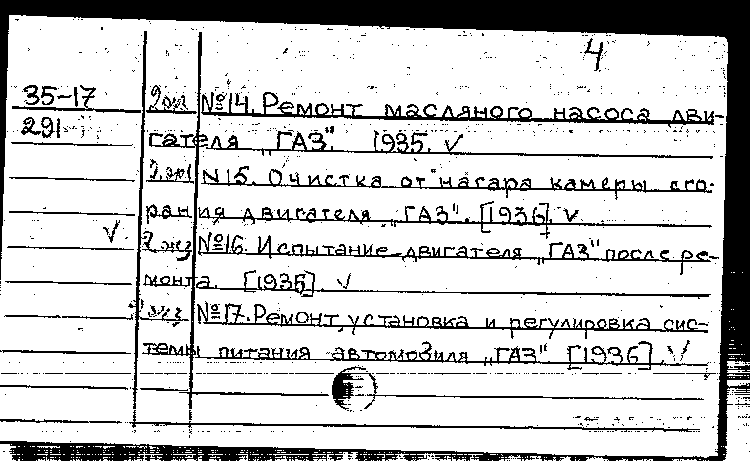 4
35-17 2экз №14. Ремонт масляного насоса дви-
291 гателя „ГАЗ". 1935. √
2экз N15. Очистка от нагара камеры сго-
рания двигателя „ГАЗ". [1936]. √
√ 2экз №16. Испытание двигателя „ГАЗ" после ре-
монта. [1936]. √
2экз №17. Ремонт, установка и регулировка сис-
темы питания автомобиля „ГАЗ" [1936]. √